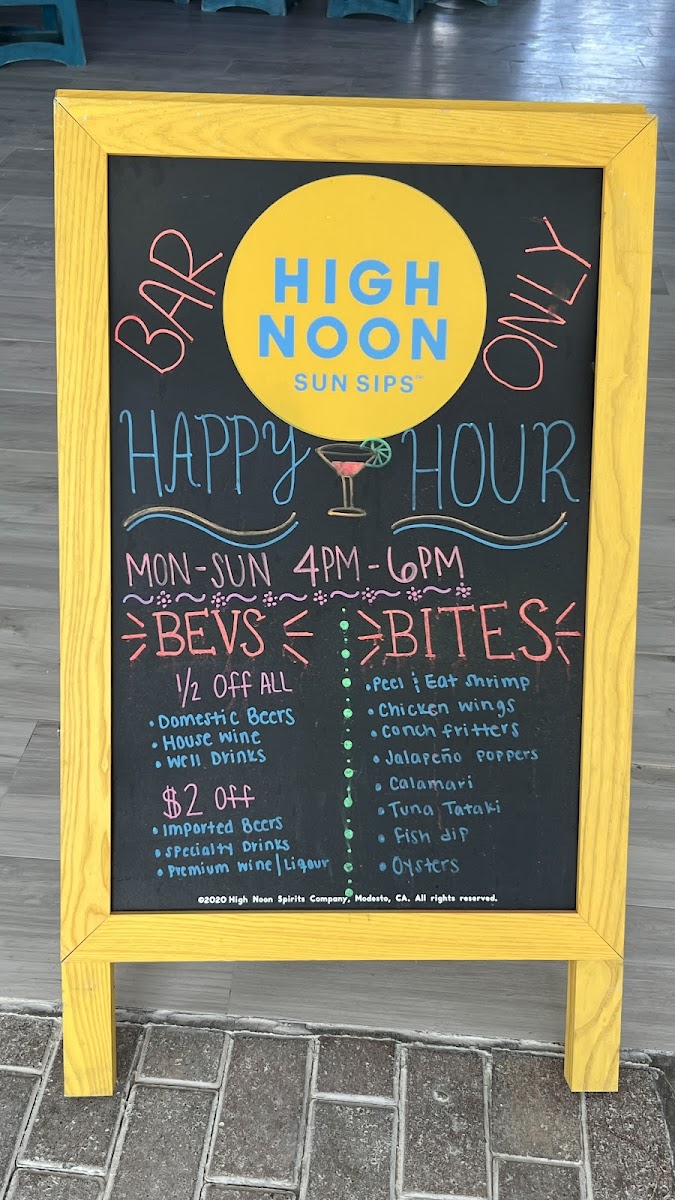 BAR
ONLY
HIGH
NOON
SUN SIPS™
HAPPY HOUR
MON-SUN 4PM-6PM
BEVS
1/2 OFF ALL
• Domestic Beers
• House wine
• Well Drinks
$2 OFF
• Imported Beers
• Specialty Drinks
• Premium wine/Liqour
BITES
• Peel & Eat shrimp
• Chicken wings
• Conch fritters
• Jalapeño Poppers
• Calamari
• Tuna Tataki
• Fish dip
• Oysters
©2020 High Noon Spirits Company, Modesto, CA. All rights reserved.